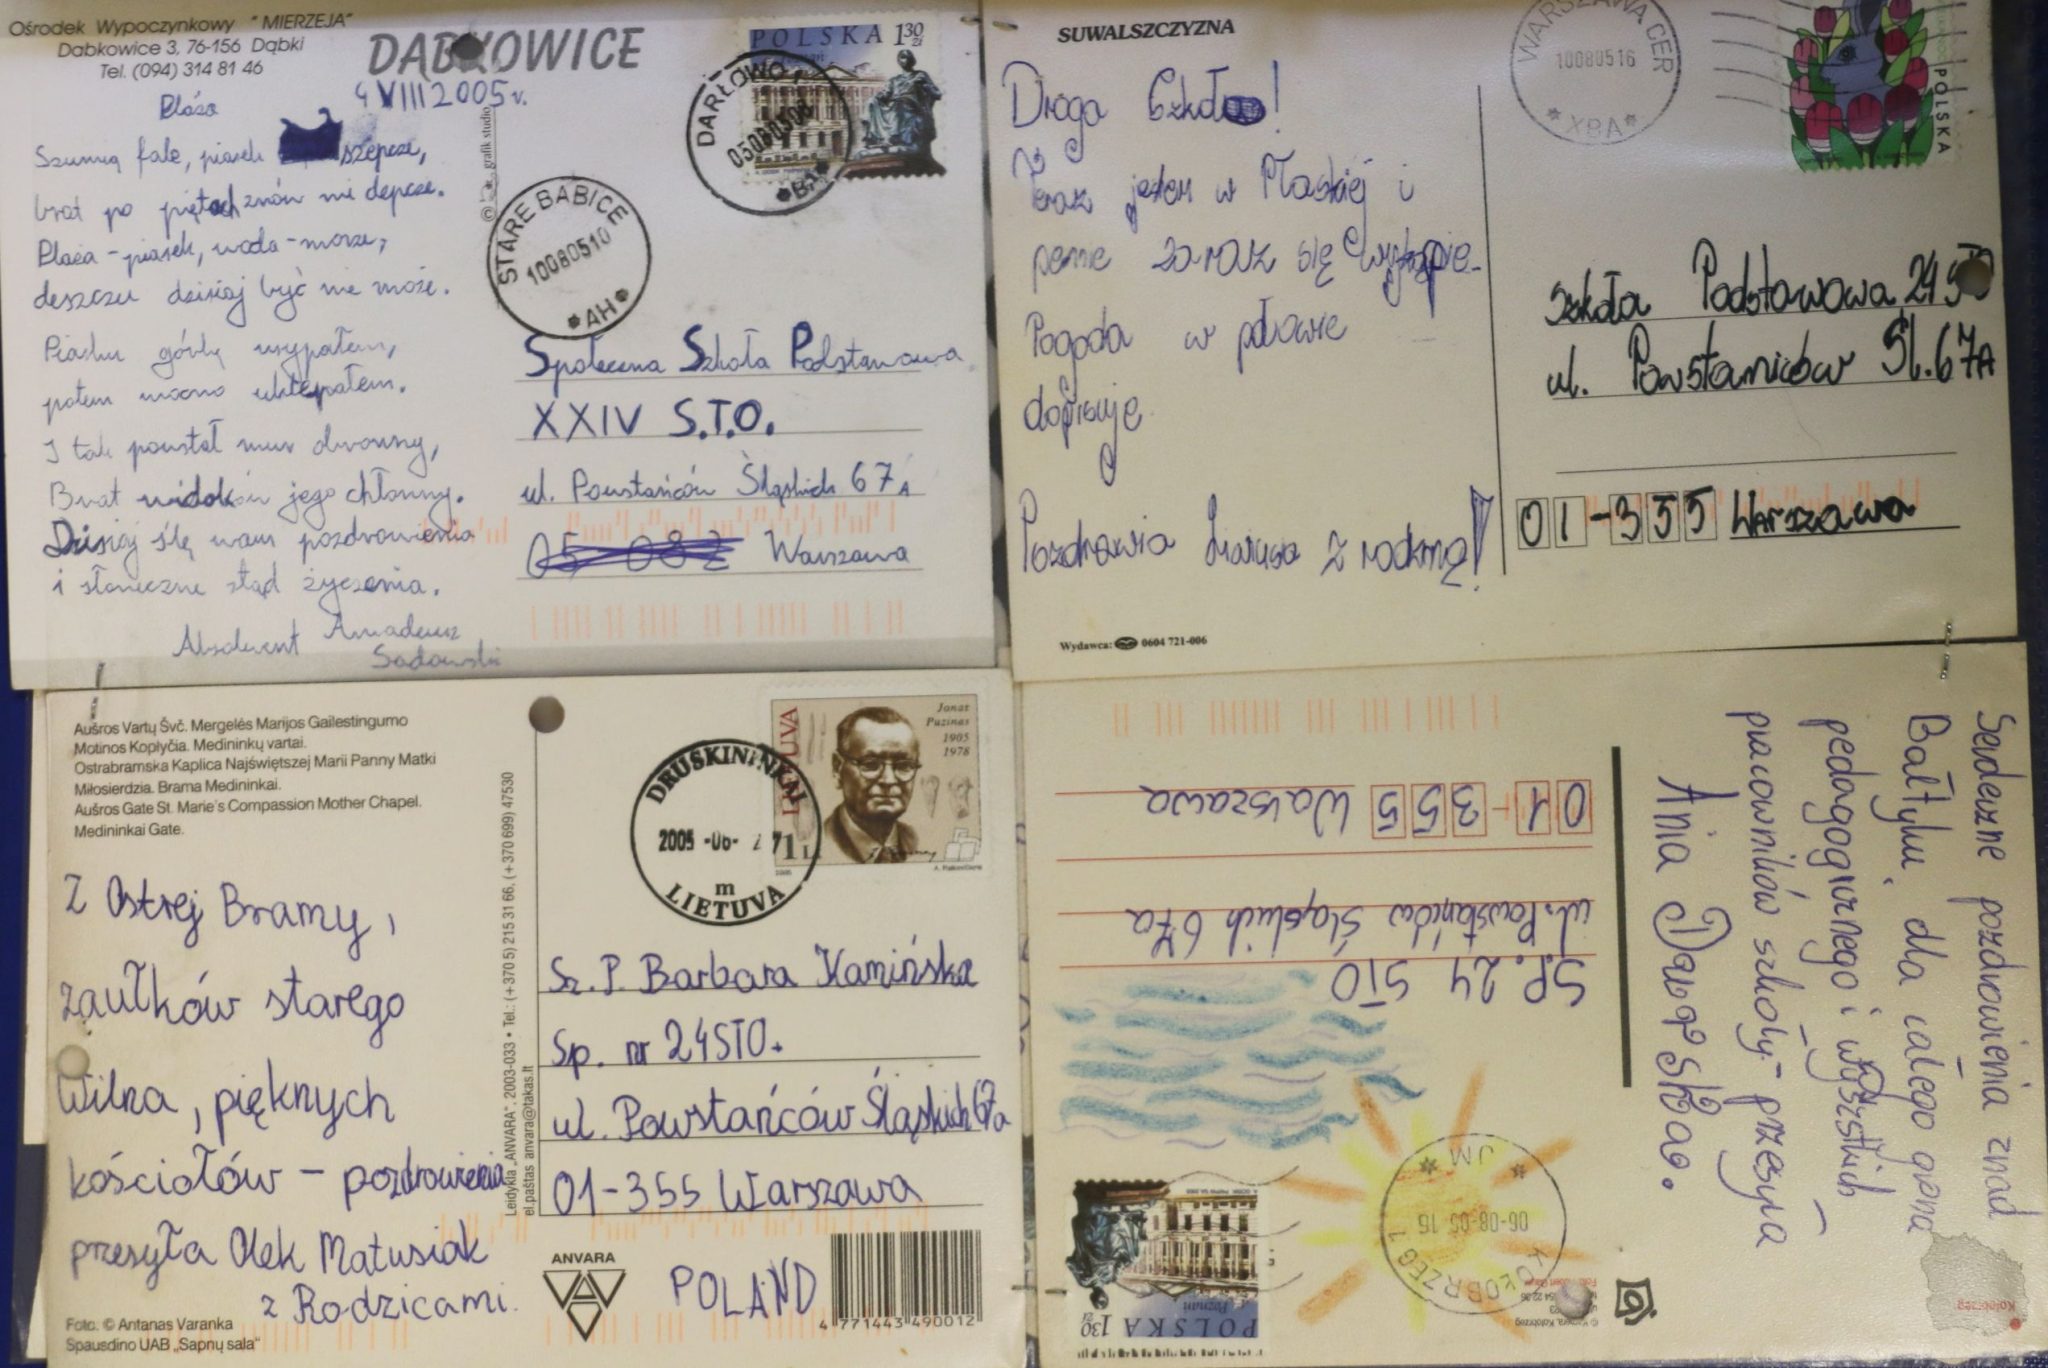 Ośrodek Wypoczynkowy "MIERZEJA"
Dabkowice 3, 76-156 Dąbki
Tel. (094) 314 81 46
DĄBKOWICE
4 VIII 2005 r.
Plaża
Szumią fale, piasek szepcze,
brat po piętach znów mi depcze.
Plaża - piasek, woda - morze,
deszczu dzisiaj być nie może.
Piasku górkę usypałem,
potem mocno uklepałem.
I tak powstał mur obronny,
Brat widoków jego chłonny.
Dzisiaj ślę wam pozdrowienia
i słoneczne stąd życzenia.
Absolwent Amadeusz
Sadowski
© grafik studio
POLSKA 1 30 zł
DARŁOWO 1
05080508
*BA*
STARE BABICE
10080510
*AH*
Społeczna Szkoła Podstawowa
XXIV S.T.O.
ul. Powstańców Śląskich 67A
05 082 Warszawa
SUWALSZCZYZNA
Droga Szkoło!
Teraz jestem w Płaskiej i
pewnie zaraz się wykąpię.
Pogoda w połowie
dopisuje.
Pozdrawia z rodziną!
Wydawca: 0604 721-006
WARSZAWA CER
10080516
*XBA*
POLSKA
Szkoła Podstawowa 24 STO
ul. Powstańców Śl. 67A
01-355 Warszawa
Aušros Vartų Švč. Mergelės Marijos Gailestingumo
Motinos Koplyčia. Medininkų vartai.
Ostrabramska Kaplica Najświętszej Marii Panny Matki
Miłosierdzia. Brama Medininkai.
Aušros Gate St. Marie's Compassion Mother Chapel.
Medininkai Gate.
Z Ostrej Bramy,
zaułków starego
Wilna, pięknych
kościołów - pozdrowienia
przesyła Olek Matusiak
z Rodzicami.
Foto. © Antanas Varanka
Spausdino UAB „Sapnų sala"
Leidykla „ANVARA", 2003-033 • Tel.: (+370 5) 215 31 66, (+370 699) 47530
el.paštas anvara@takas.lt
Jonas
Puzinas
1905
1978
LIETUVA
1 Lt
2005
DRUSKININKAI
2005 -06-
m
LIETUVA
Sz. P. Barbara Kamińska
Sp. nr 24 STO.
ul. Powstańców Śląskich 67a
01-355 Warszawa
ANVARA
POLAND
4 771443 490012
Serdeczne pozdrowienia znad
Bałtyku, dla całego grona
pedagogicznego i wszystkich
pracowników szkoły - przesyła
Ania
SP. 24 STO
ul. Powstańców Śląskich 67a
01-355 Warszawa
KOŁOBRZEG 1
06-08-05 15
* JM *
POLSKA 1 30 zł
Poznań
Kołobrzeg